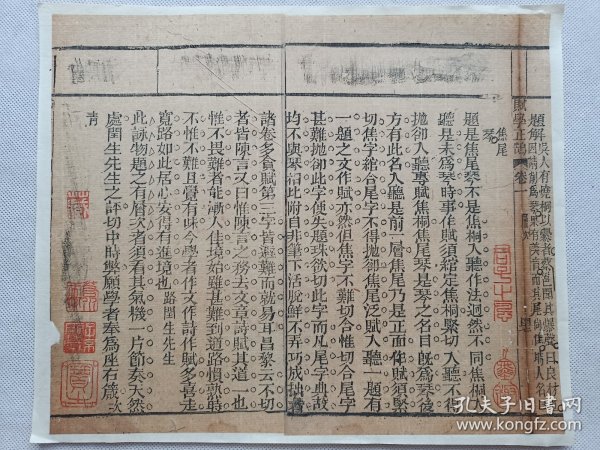 賦學正鵠 卷一
焦尾
琴
題是焦尾琴不是焦桐入聽作法迥然不同焦桐
聽是未爲琴時事作賦須緒定焦桐緊切入聽不得
拋卻入聽專賦焦桐焦尾琴是琴之名目既爲琴後
方有此名入聽是前一層焦尾乃是正面作賦須緊
切焦字綰合尾字不得拋卻焦尾泛賦入聽一題有
一題之文作賦亦然但焦字不難切合惟切合尾字
甚難拋卻此字便失題珠欲切此字而凡尾字典故
均不與琴相比附自非筆下活脫鮮不弄巧成拙
諸卷多貪賦第三字皆避難而就易耳昌黎云不切
者皆陳言又曰惟陳言之務去文章詩賦其道一也
惟不畏難者能漸入佳境始雖甚難到道路慣熟時
不惟不難且覺有味今學者作文作詩作賦多喜走
寬路如此居心安得有進境也 路閏生先生
此詠物題之有層次者須看其氣機一片節奏天然
處閏生先生之評切中時弊願學者奉爲座右箴
孔夫子旧书网
www.kongfz.com